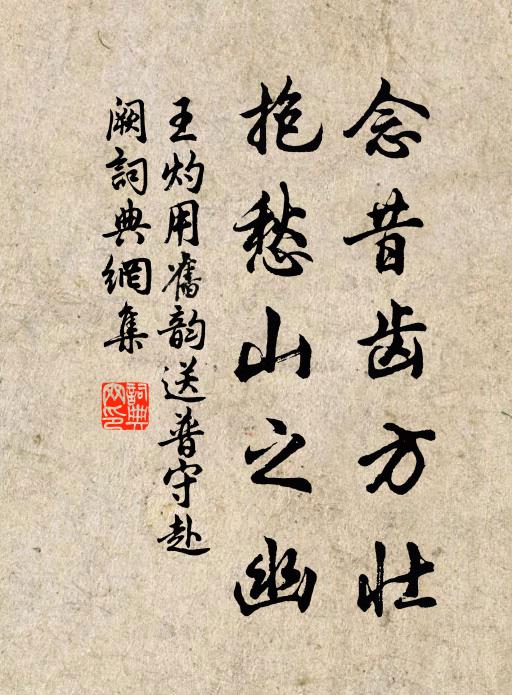 念昔齿方壮
抱愁山之幽
王灼用旧韵送普守赴
阙词典網集
詞典
网印